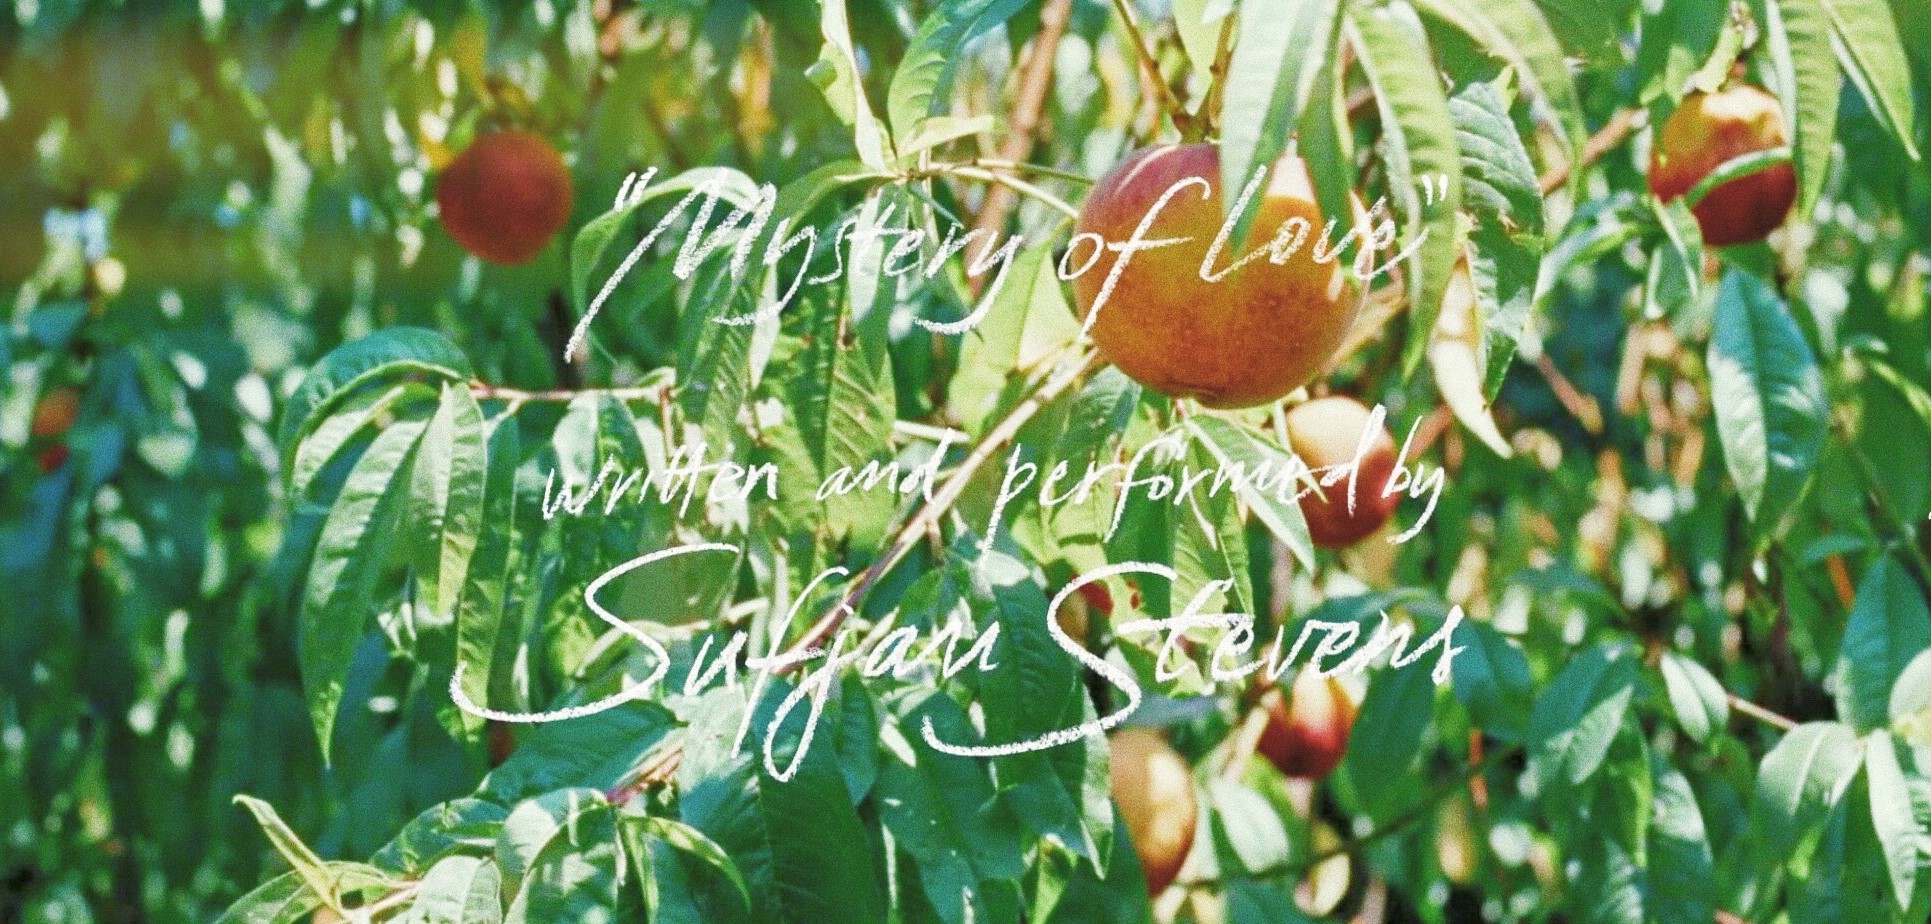 "Mystery of Love"
written and performed by
Sufjan Stevens